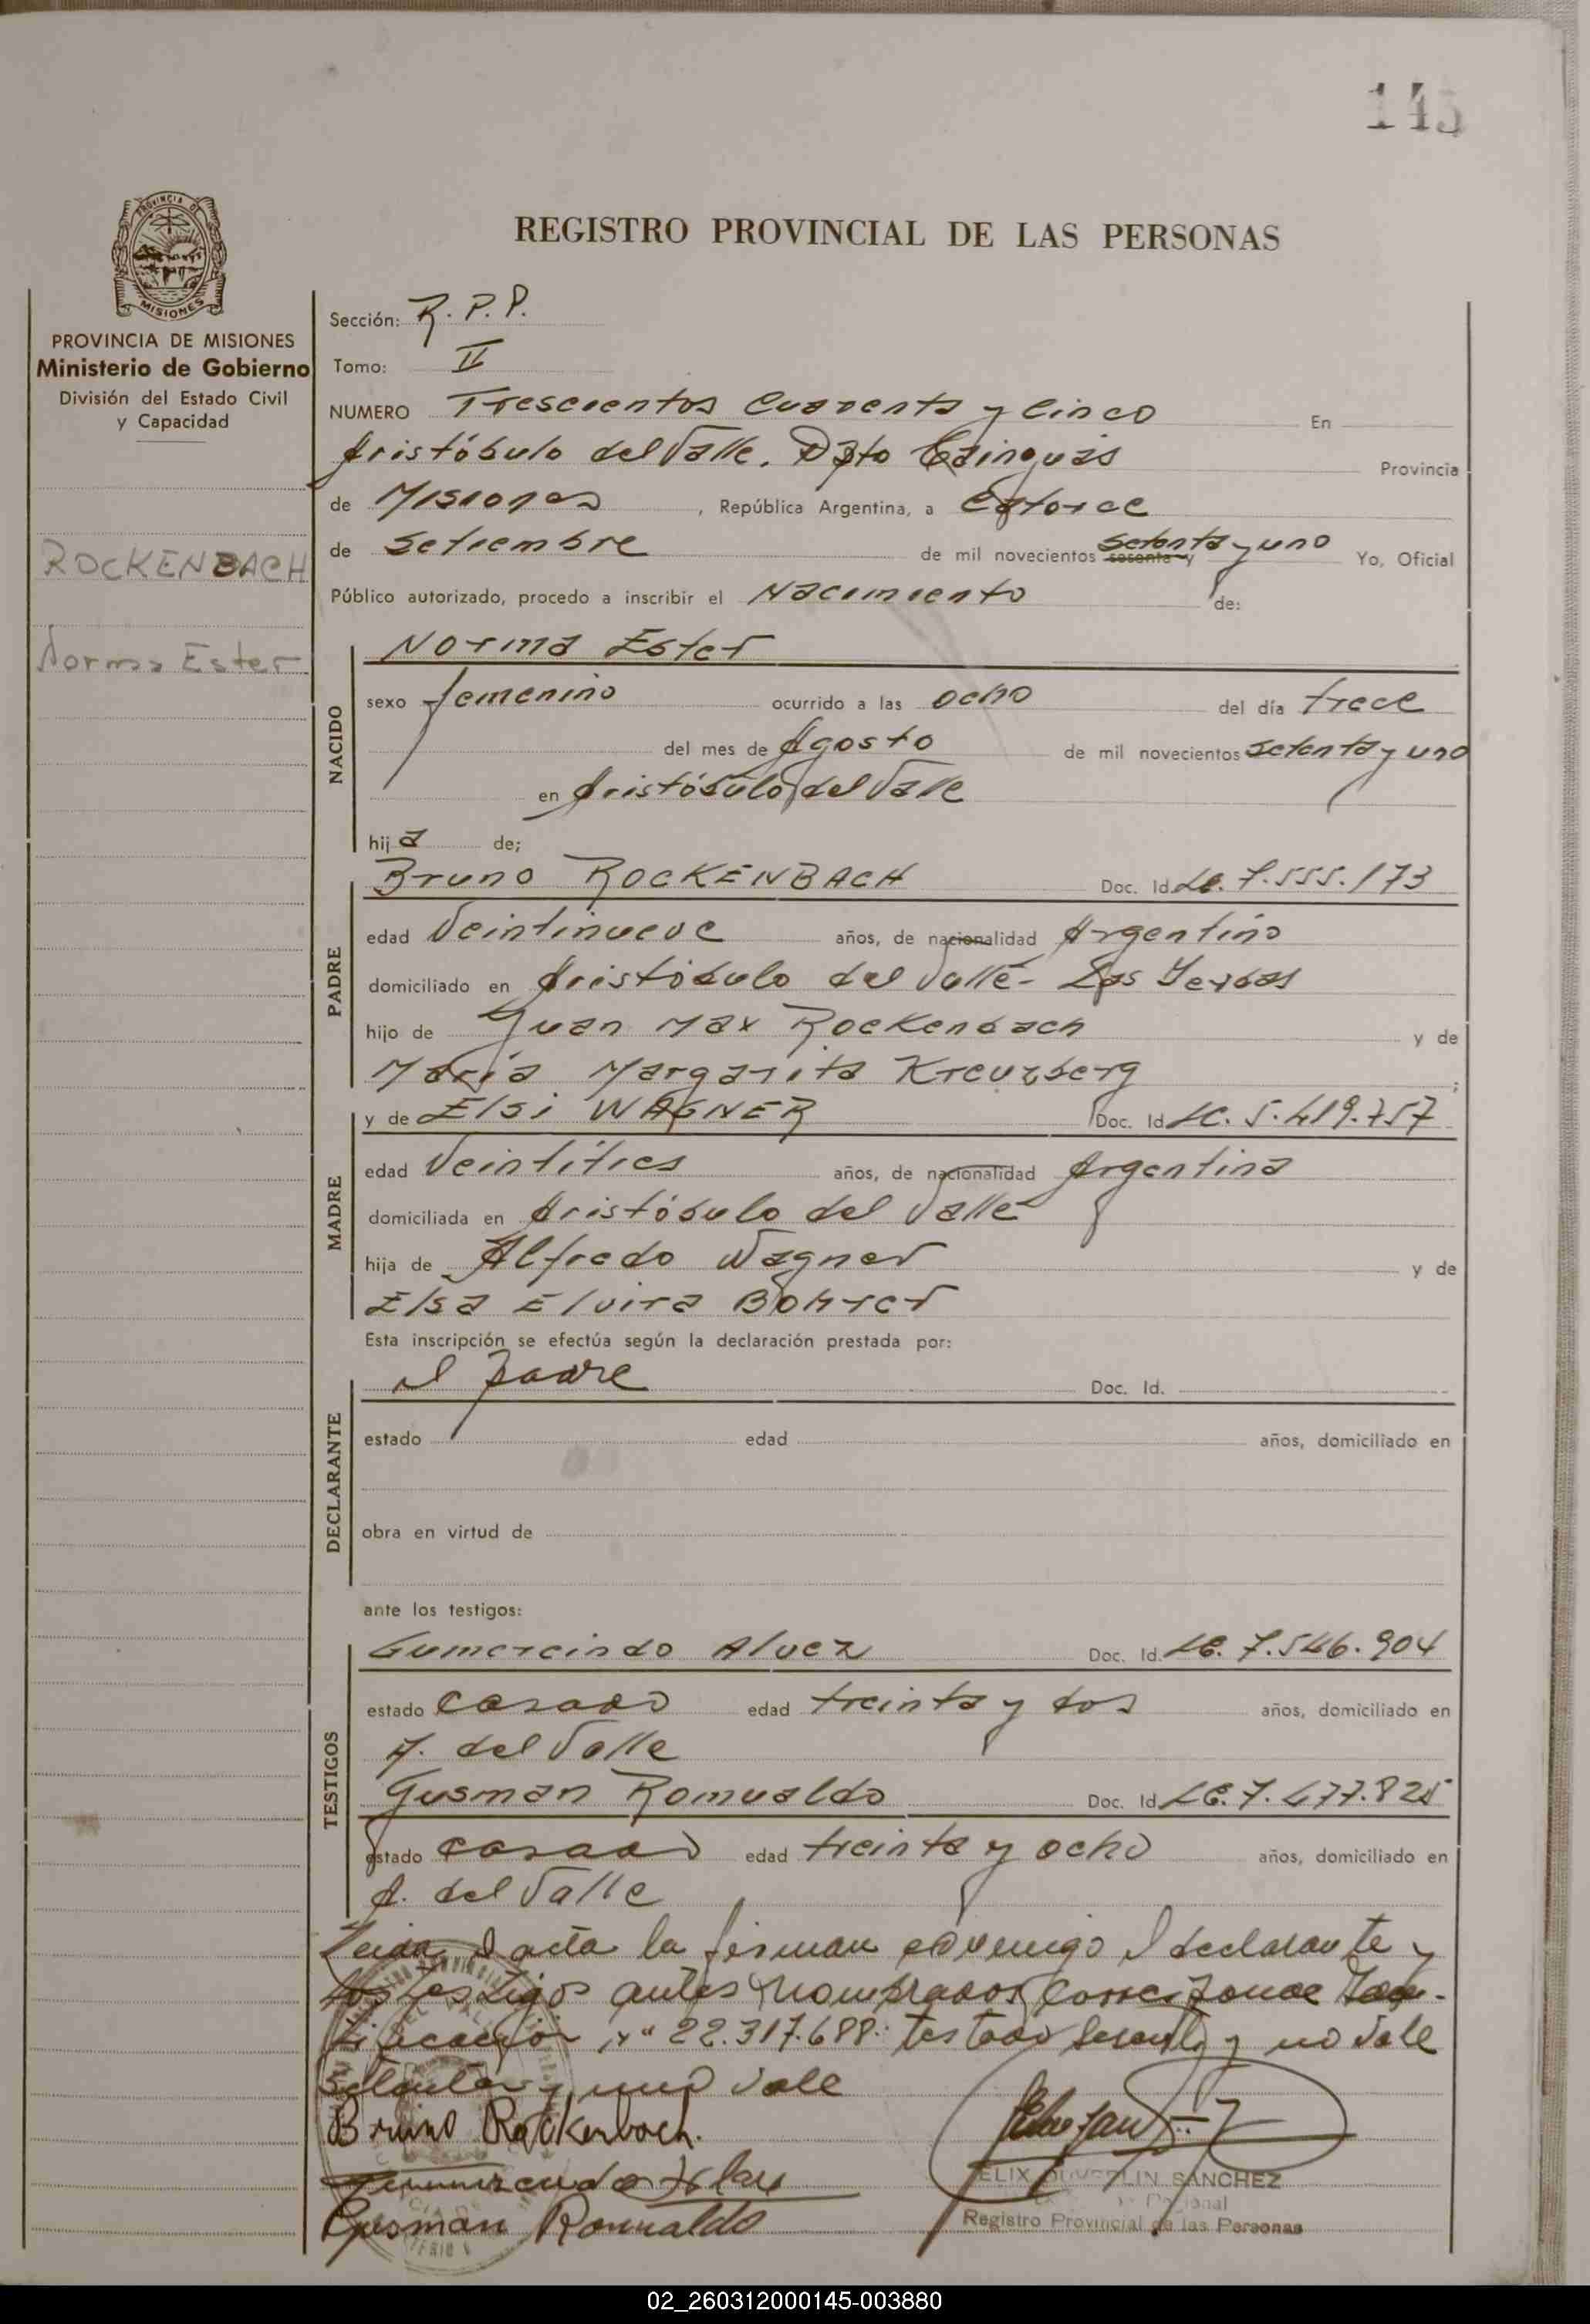 145
REGISTRO PROVINCIAL DE LAS PERSONAS
PROVINCIA DE MISIONES
PROVINCIA DE MISIONES
Ministerio de Gobierno
División del Estado Civil
y Capacidad
ROCKENBACH
Norma Ester
Sección: R. P. P.
Tomo: II
NUMERO Trescientos Cuarenta y Cinco En
Aristóbulo del Valle. Dpto Cainguás Provincia
de Misiones , República Argentina, a Catorce
de Setiembre de mil novecientos sesenta y setenta y uno Yo, Oficial
Público autorizado, procedo a inscribir el Nacimiento de:
NACIDO
Norma Ester
sexo femenino ocurrido a las ocho del día trece
del mes de Agosto de mil novecientos setenta y uno
en Aristóbulo del Valle
hija de;
PADRE
Bruno ROCKENBACH Doc. Id. LE. 7.555.173
edad Veintinueve años, de nacionalidad Argentino
domiciliado en Aristóbulo del Valle - Las Yerbas
hijo de Juan Max Rockenbach y de
María Margarita Kreuzberg ;
MADRE
y de Elsi WAGNER Doc. Id LC. 5.419.757
edad Veintitres años, de nacionalidad Argentina
domiciliada en Aristóbulo del Valle
hija de Alfredo Wagner y de
Elsa Elvira Bohrer
Esta inscripción se efectúa según la declaración prestada por:
DECLARANTE
el padre Doc. Id.
estado edad años, domiciliado en
obra en virtud de
ante los testigos:
TESTIGOS
Gumercindo Alvez Doc. Id. LE. 7.546.904
estado casado edad treinta y dos años, domiciliado en
A. del Valle
Gusman Romualdo Doc. Id LE. 7.477.825
estado casado edad treinta y ocho años, domiciliado en
A. del Valle
Leida el acta la firman conmigo el declarante y
los testigos antes nombrados corresponde Iden-
tificación nº 22.317.688. testado sesenta y no vale
setenta y uno vale
Bruno Rockenbach.
Gusman Romualdo
FELIX DUVERLIN SANCHEZ
Registro Provincial de las Personas
02_260312000145-003880